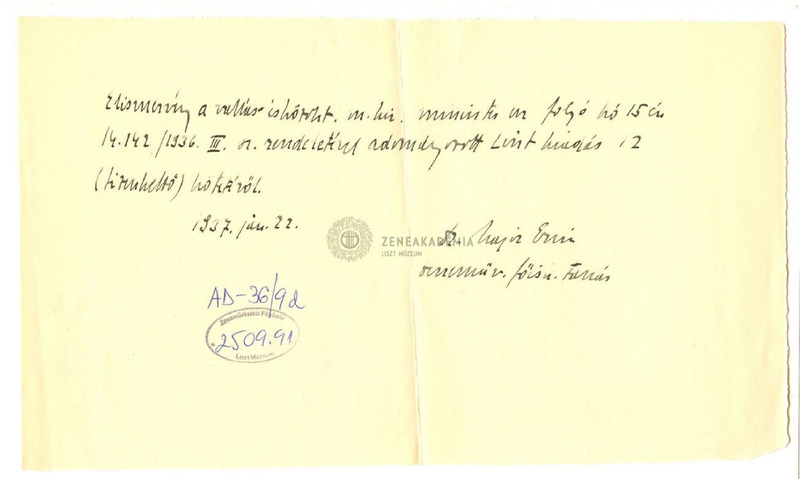 Elismervény a vallás- és közokt. m. kir. minister úr folyó hó 15 én
14.142/1936. III. sz. rendeletével adományozott Liszt kiadás 12
(tizenkettő) kötetéről.
1937. jún. 22.
Dr. Major Ervin
zeneműv. főisk. tanár
ZENEAKADÉMIA
LISZT MÚZEUM
AD-36/9d
Zeneművészeti Főiskola
2509.91
Liszt Múzeum